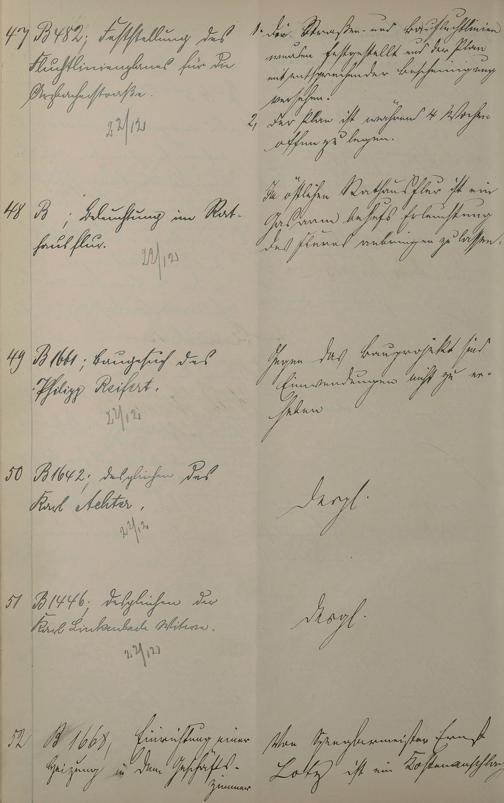 47 B 482; Feststellung des
Fluchtlinienplanes für die
22/12
1. Die Straßen- und Baufluchtlinien
wurden festgestellt und der Plan
mit entsprechender Bescheinigung
versehen.
2, Der Plan ist während 4 Wochen
offen zu legen.
48 B ; Beleuchtung im Rat-
hausflur.
22/12
Im östlichen Rathausflur ist ein
Gasarm behufs Erleuchtung
des Flures anbringen zu lassen.
49 B 1661; Baugesuch des
Philipp Reifert.
22/12
Gegen das Bauprojekt sind
Einwendungen nicht zu er-
heben
50 B 1642; desgleichen des
Karl Achter.
22/12
Desgl.
51 B 1446; desgleichen der
Karl Linkenbach Witwe.
22/12
Desgl.
52 B 1668, Einrichtung einer
Heizung in dem Geschäfts-
zimmer
Von Spenglermeister Ernst
Lotz ist ein Kostenanschlag